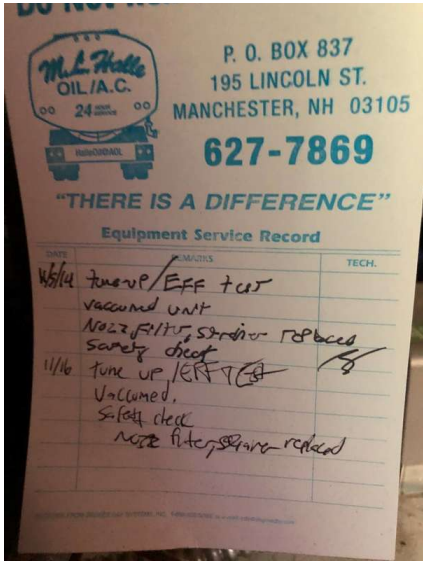 M.L. Halle
OIL/A.C.
24 HOUR SERVICE
HalleOil@AOL
P. O. BOX 837
195 LINCOLN ST.
MANCHESTER, NH 03105
627-7869
"THERE IS A DIFFERENCE"
Equipment Service Record
DATE REMARKS TECH.
tune-up/EFF test
vaccumed unit
Nozz, Filter, strainer replaced
Safety check
11/16 tune up/EFF TEST
Vaccumed,
Safety check
Nozz filter, strainer replaced